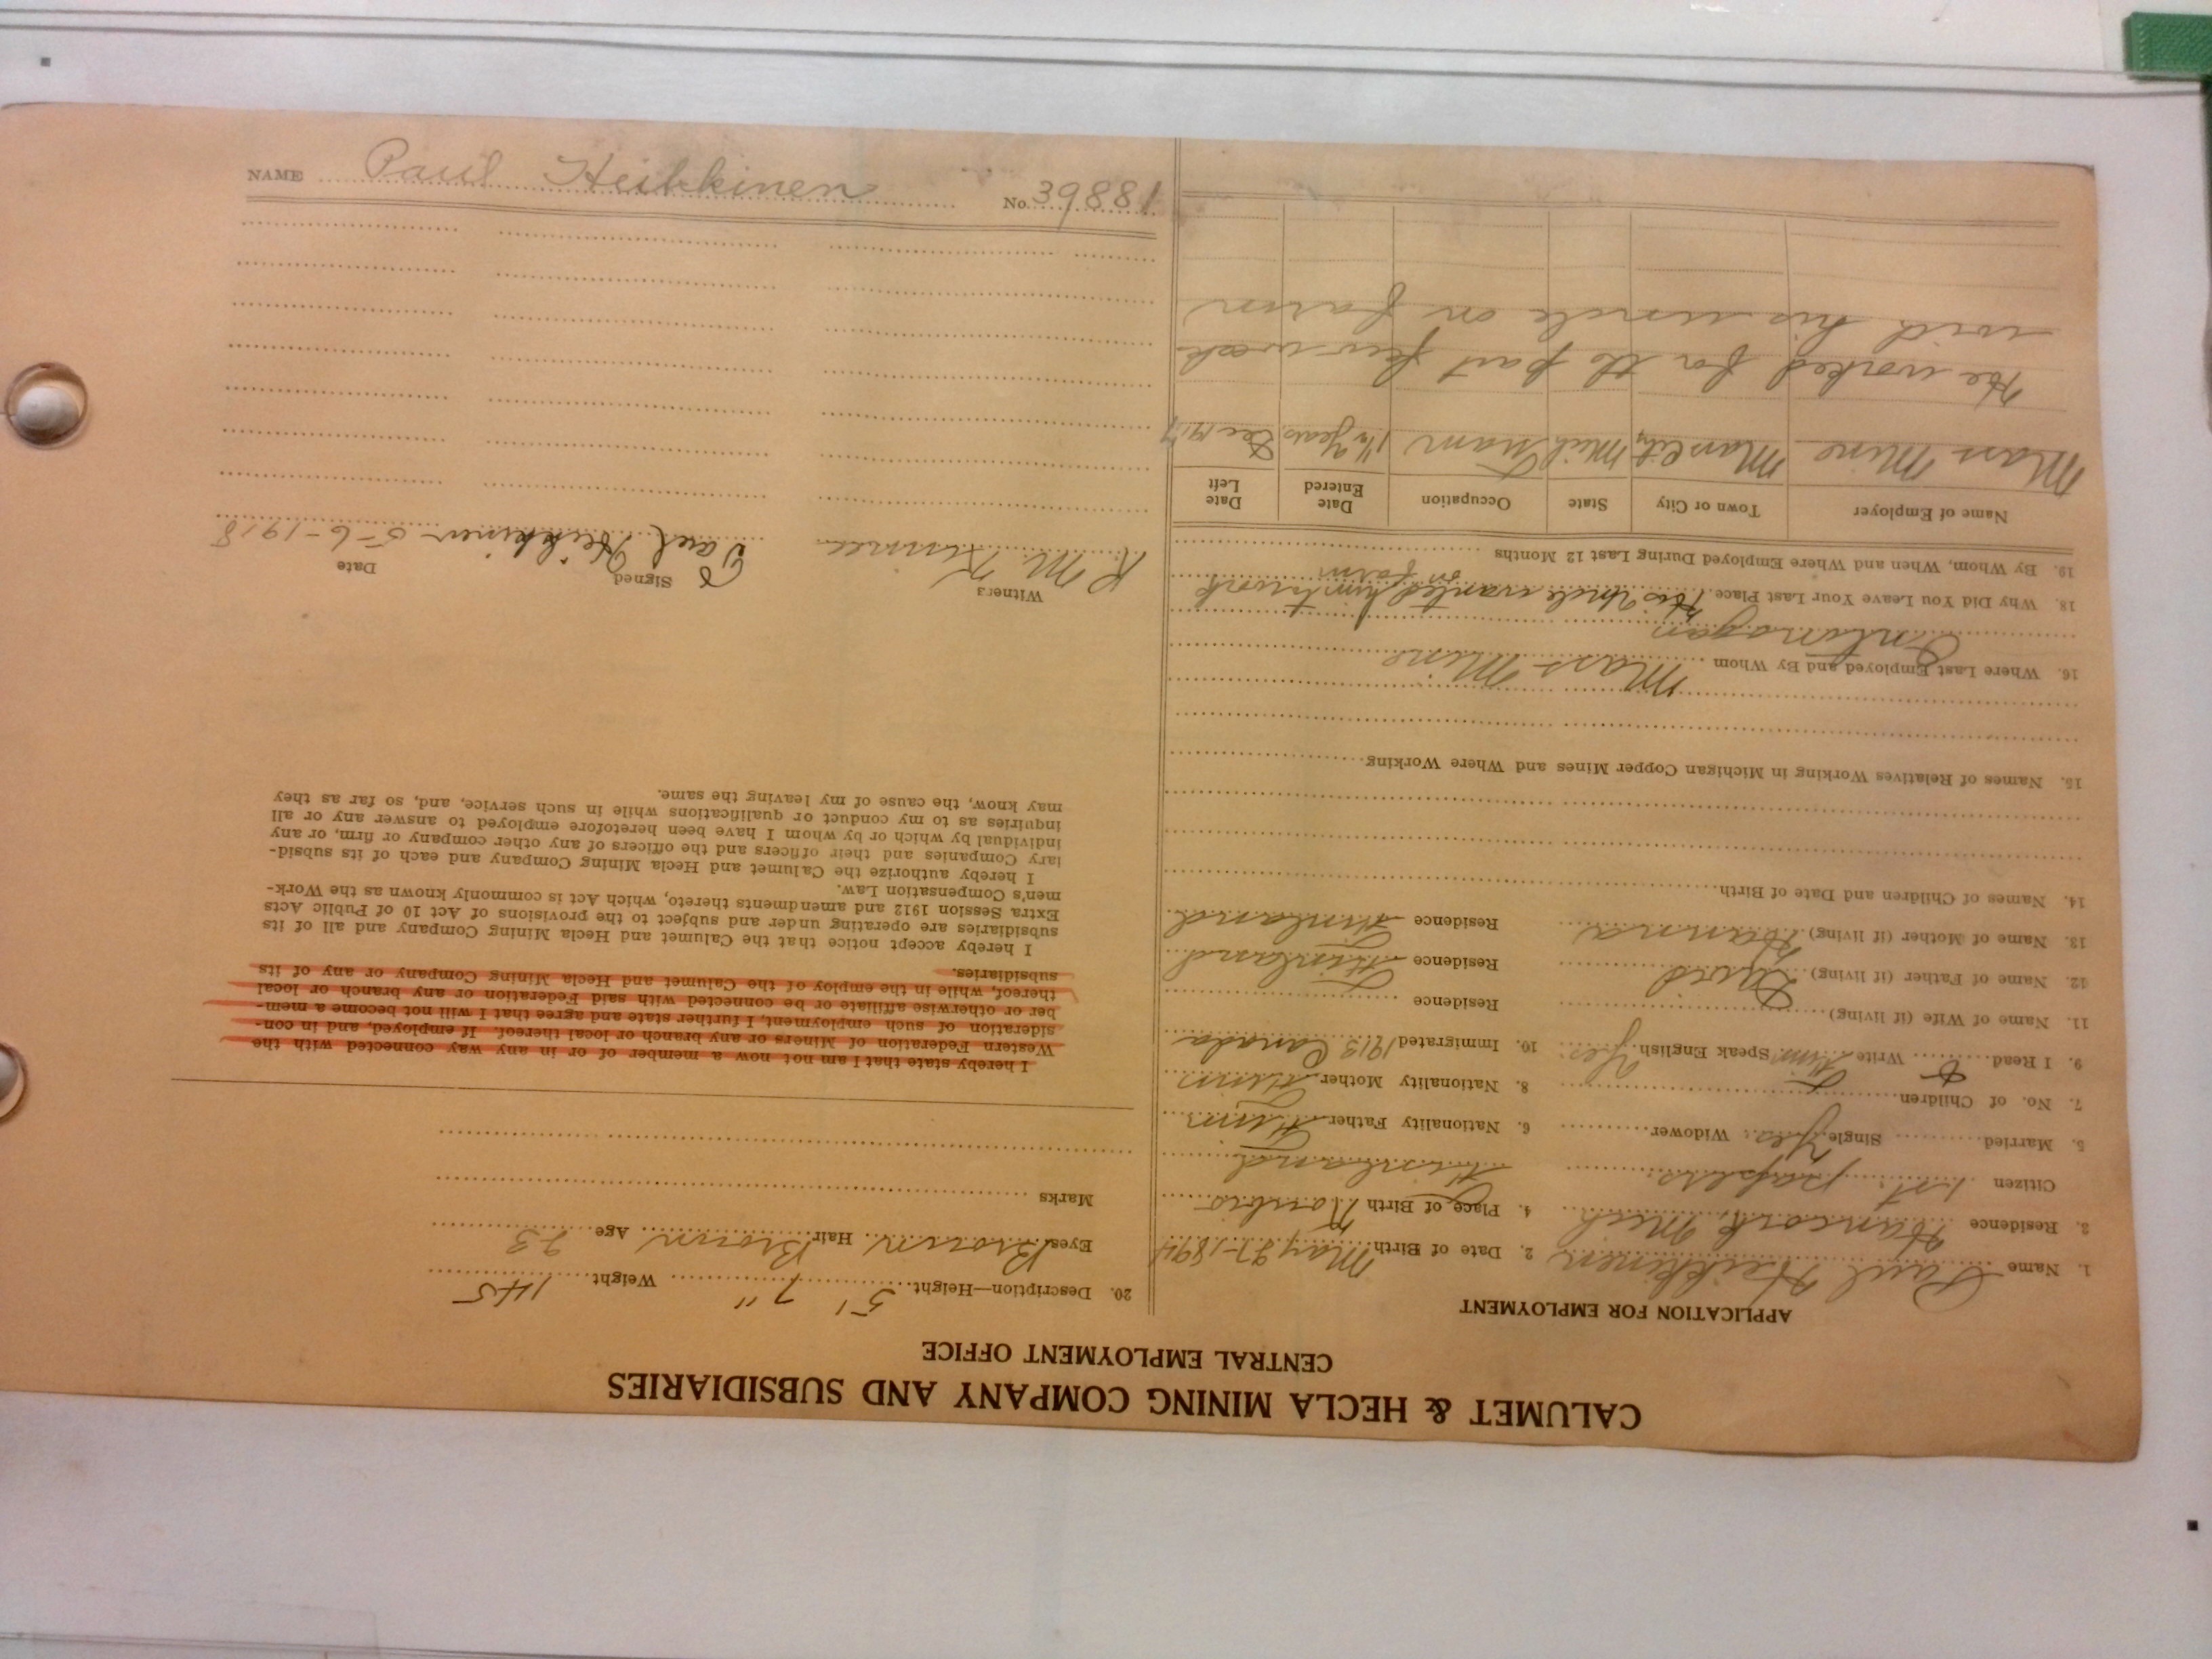 CALUMET & HECLA MINING COMPANY AND SUBSIDIARIES
CENTRAL EMPLOYMENT OFFICE
APPLICATION FOR EMPLOYMENT
1. Name Paul Heikkinen 2. Date of Birth May 27-1894
3. Residence Hancock, Mich 4. Place of Birth
Citizen 1st papers. Finland
5. Married Single Yes. Widower 6. Nationality Father Finn
7. No. of Children 8. Nationality Mother Finn
9. I Read & Write Finn Speak English Yes. 10. Immigrated 1913 Canada
11. Name of Wife (if living) Residence
12. Name of Father (if living) David Residence Finland
13. Name of Mother (if living) Hanna Residence Finland
14. Names of Children and Date of Birth
15. Names of Relatives Working in Michigan Copper Mines and Where Working
16. Where Last Employed and By Whom Mass Mine
Ontonagon
18. Why Did You Leave Your Last Place His Uncle wanted him to work
on farm
19. By Whom, When and Where Employed During Last 12 Months
Name of Employer Town or City State Occupation Date Entered Date Left
Mass Mine Mass City Mich Tram 1½ Years Dec 1917
He worked for the past few week
wid his uncle on farm
20. Description—Height 5' 7" Weight 145
Eyes Brown Hair Brown Age 23
Marks
I hereby state that I am not now a member of or in any way connected with the
Western Federation of Miners or any branch or local thereof. If employed, and in con-
sideration of such employment, I further state and agree that I will not become a mem-
ber or otherwise affiliate or be connected with said Federation or any branch or local
thereof, while in the employ of the Calumet and Hecla Mining Company or any of its
subsidiaries.
I hereby accept notice that the Calumet and Hecla Mining Company and all of its
subsidiaries are operating under and subject to the provisions of Act 10 of Public Acts
Extra Session 1912 and amendments thereto, which Act is commonly known as the Work-
men's Compensation Law.
I hereby authorize the Calumet and Hecla Mining Company and each of its subsid-
iary Companies and their officers and the officers of any other company or firm, or any
individual by which or by whom I have been heretofore employed to answer any or all
inquiries as to my conduct or qualifications while in such service, and, so far as they
may know, the cause of my leaving the same.
Witness Signed Date
R. M. Paul Heikkinen 5-6-1918
NAME Paul Heikkinen No. 39881